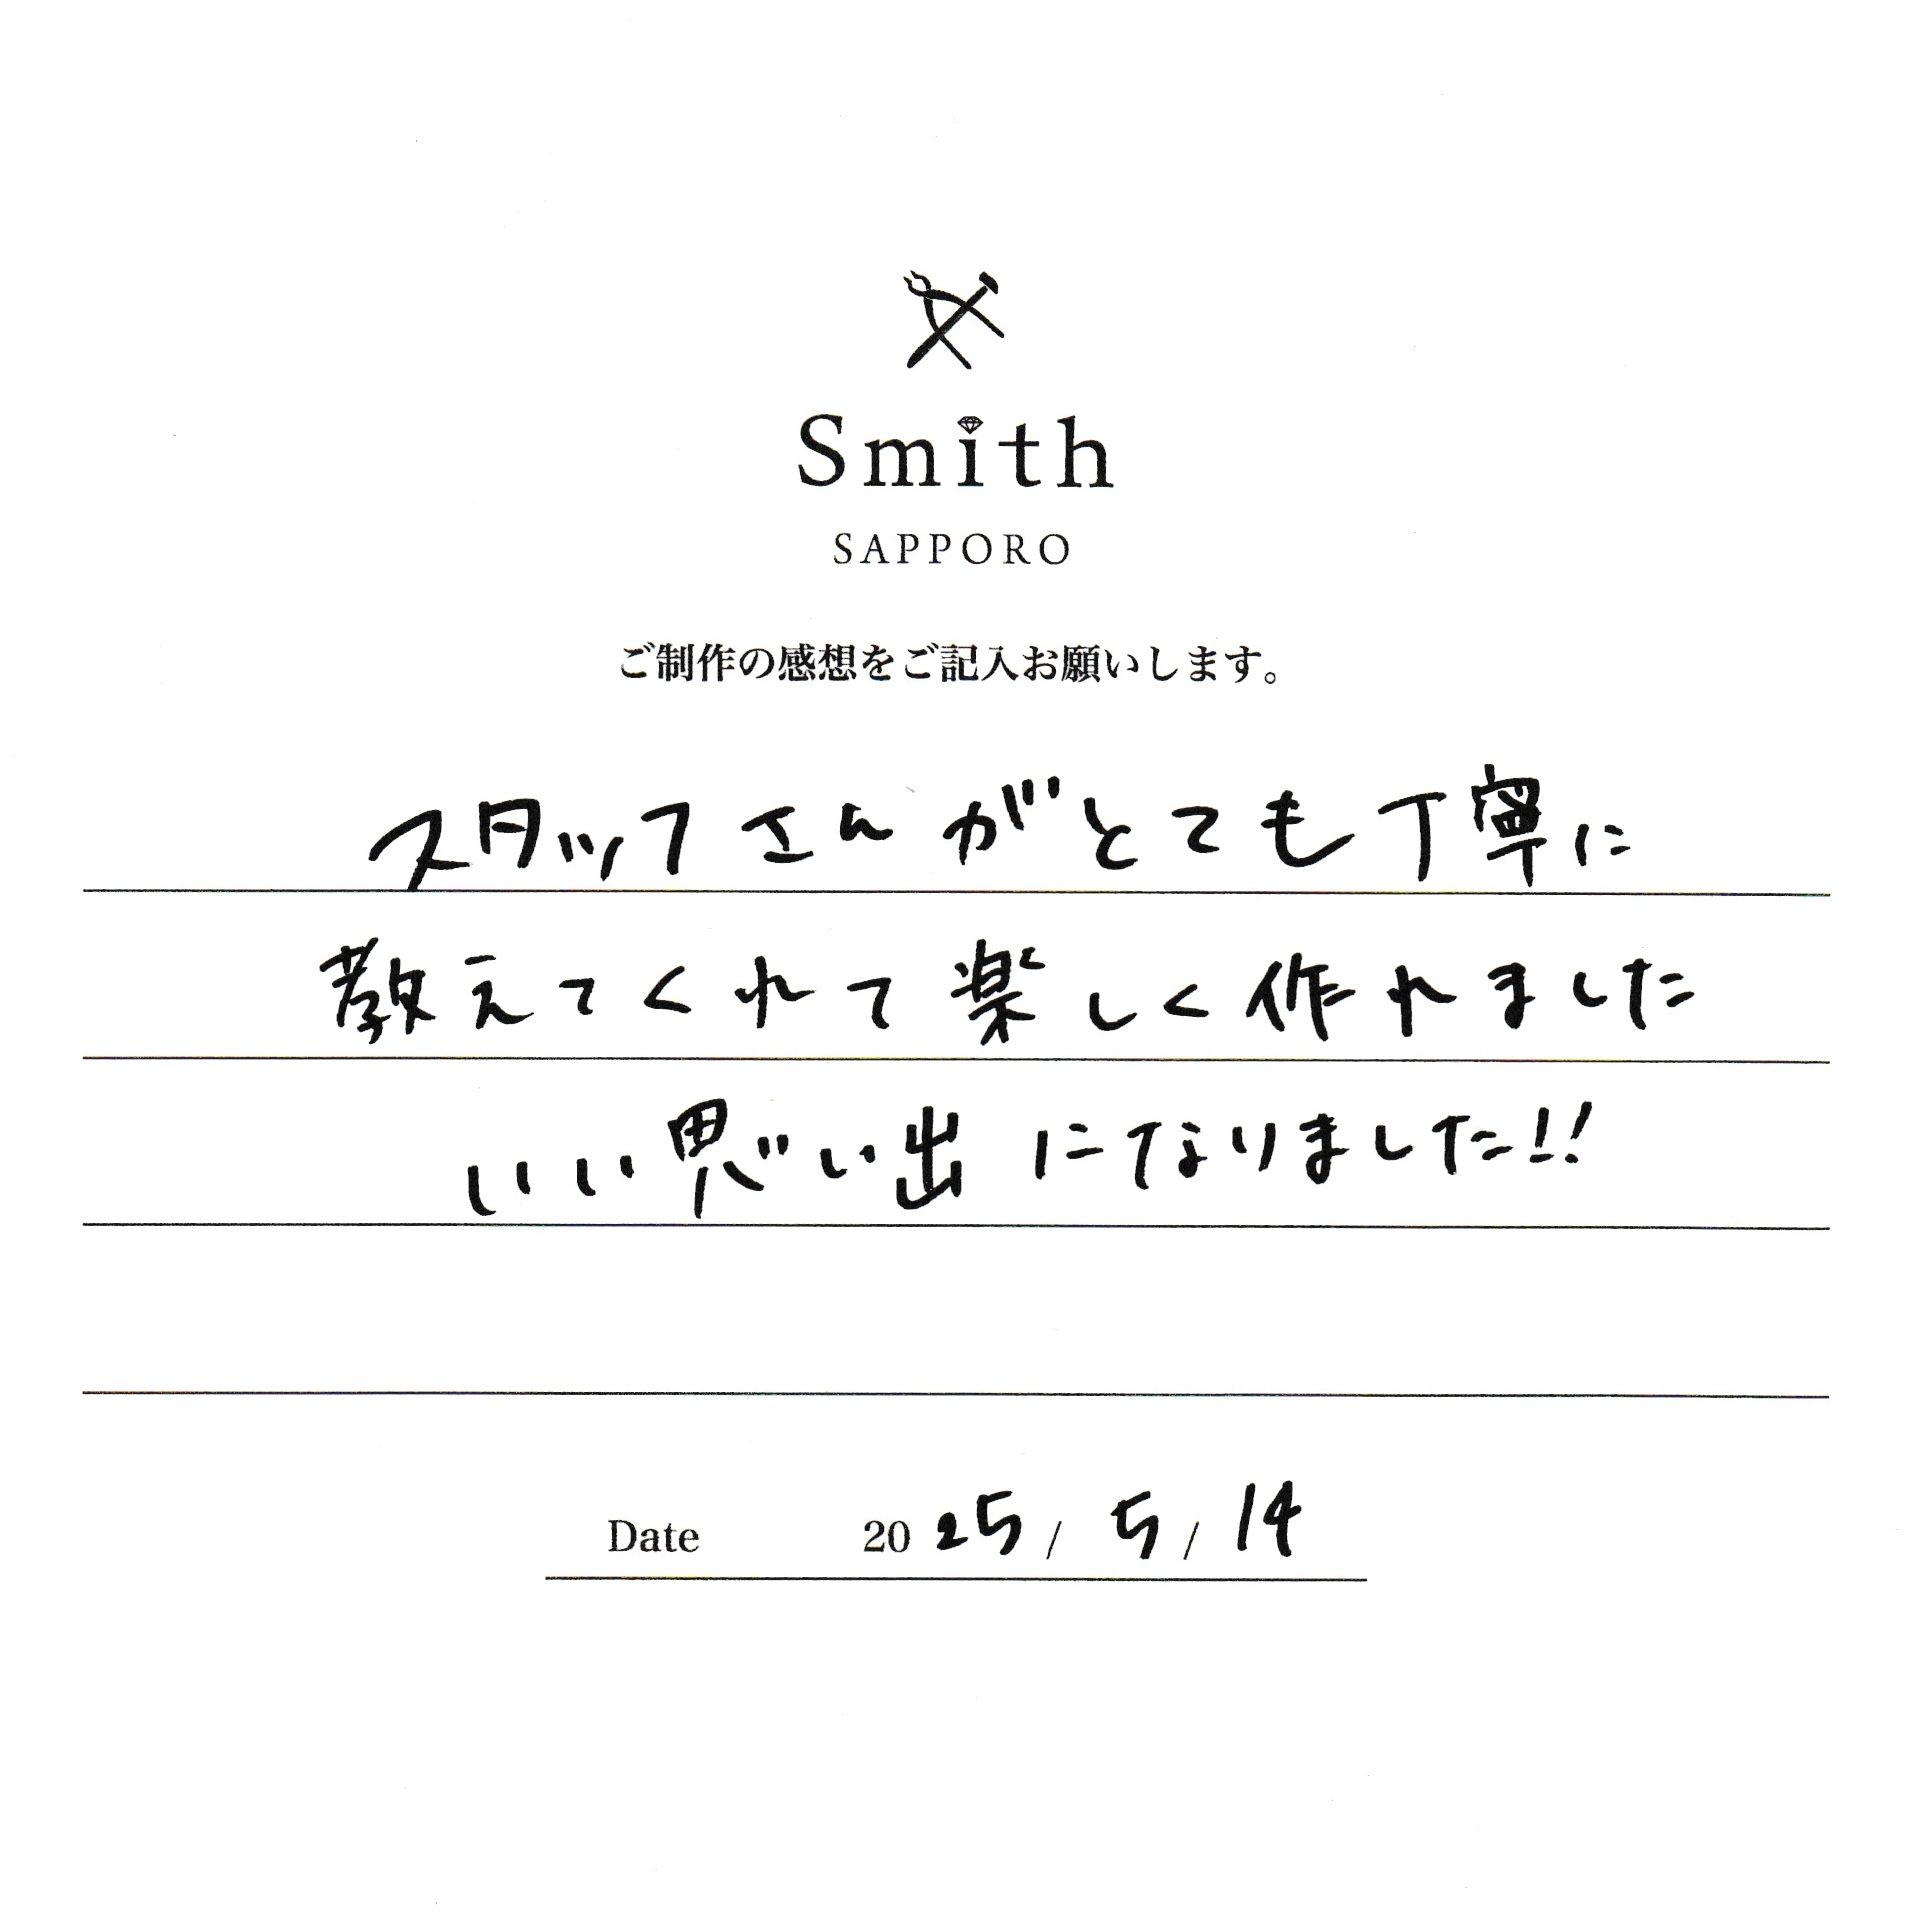 Smith
SAPPORO
ご制作の感想をご記入お願いします。
スタッフさんがとても丁寧に
教えてくれて楽しく作れました
いい思い出になりました!!
Date 2025/5/14